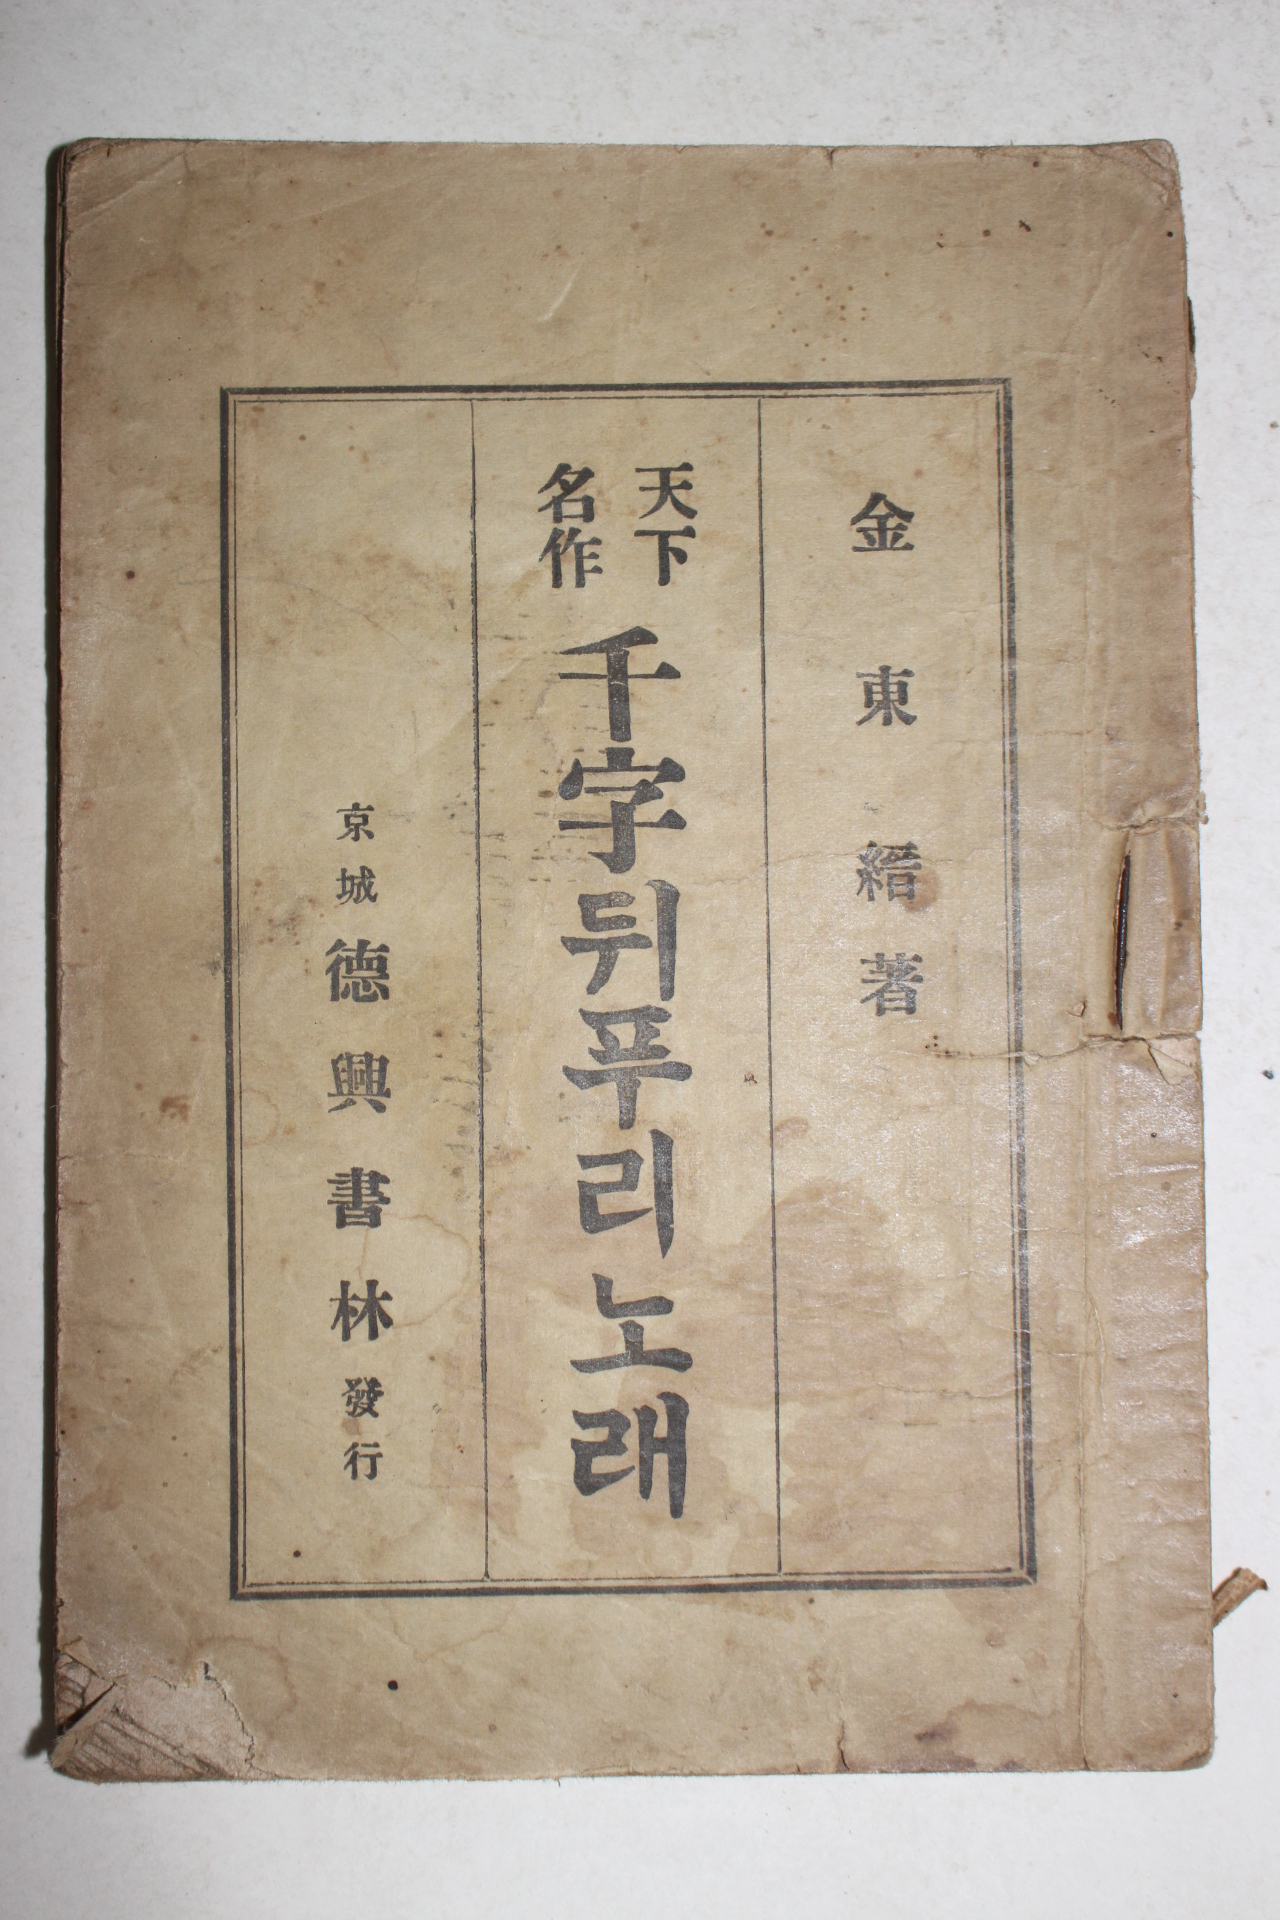 金東縉著
天下
名作
千字뒤푸리노래
京城德興書林發行